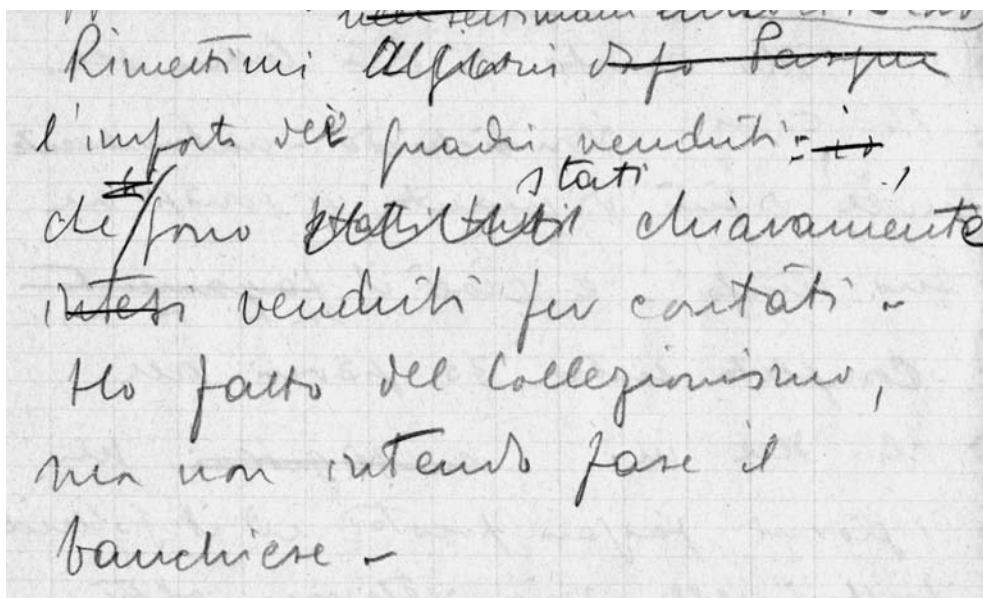 settimana
Rimettimi dopo Pasqua
l'importo dei quadri venduti:
stati
che sono chiaramente
intesi venduti per contati -
Ho fatto del Collezionismo,
ma non intendo fare il
banchiere -